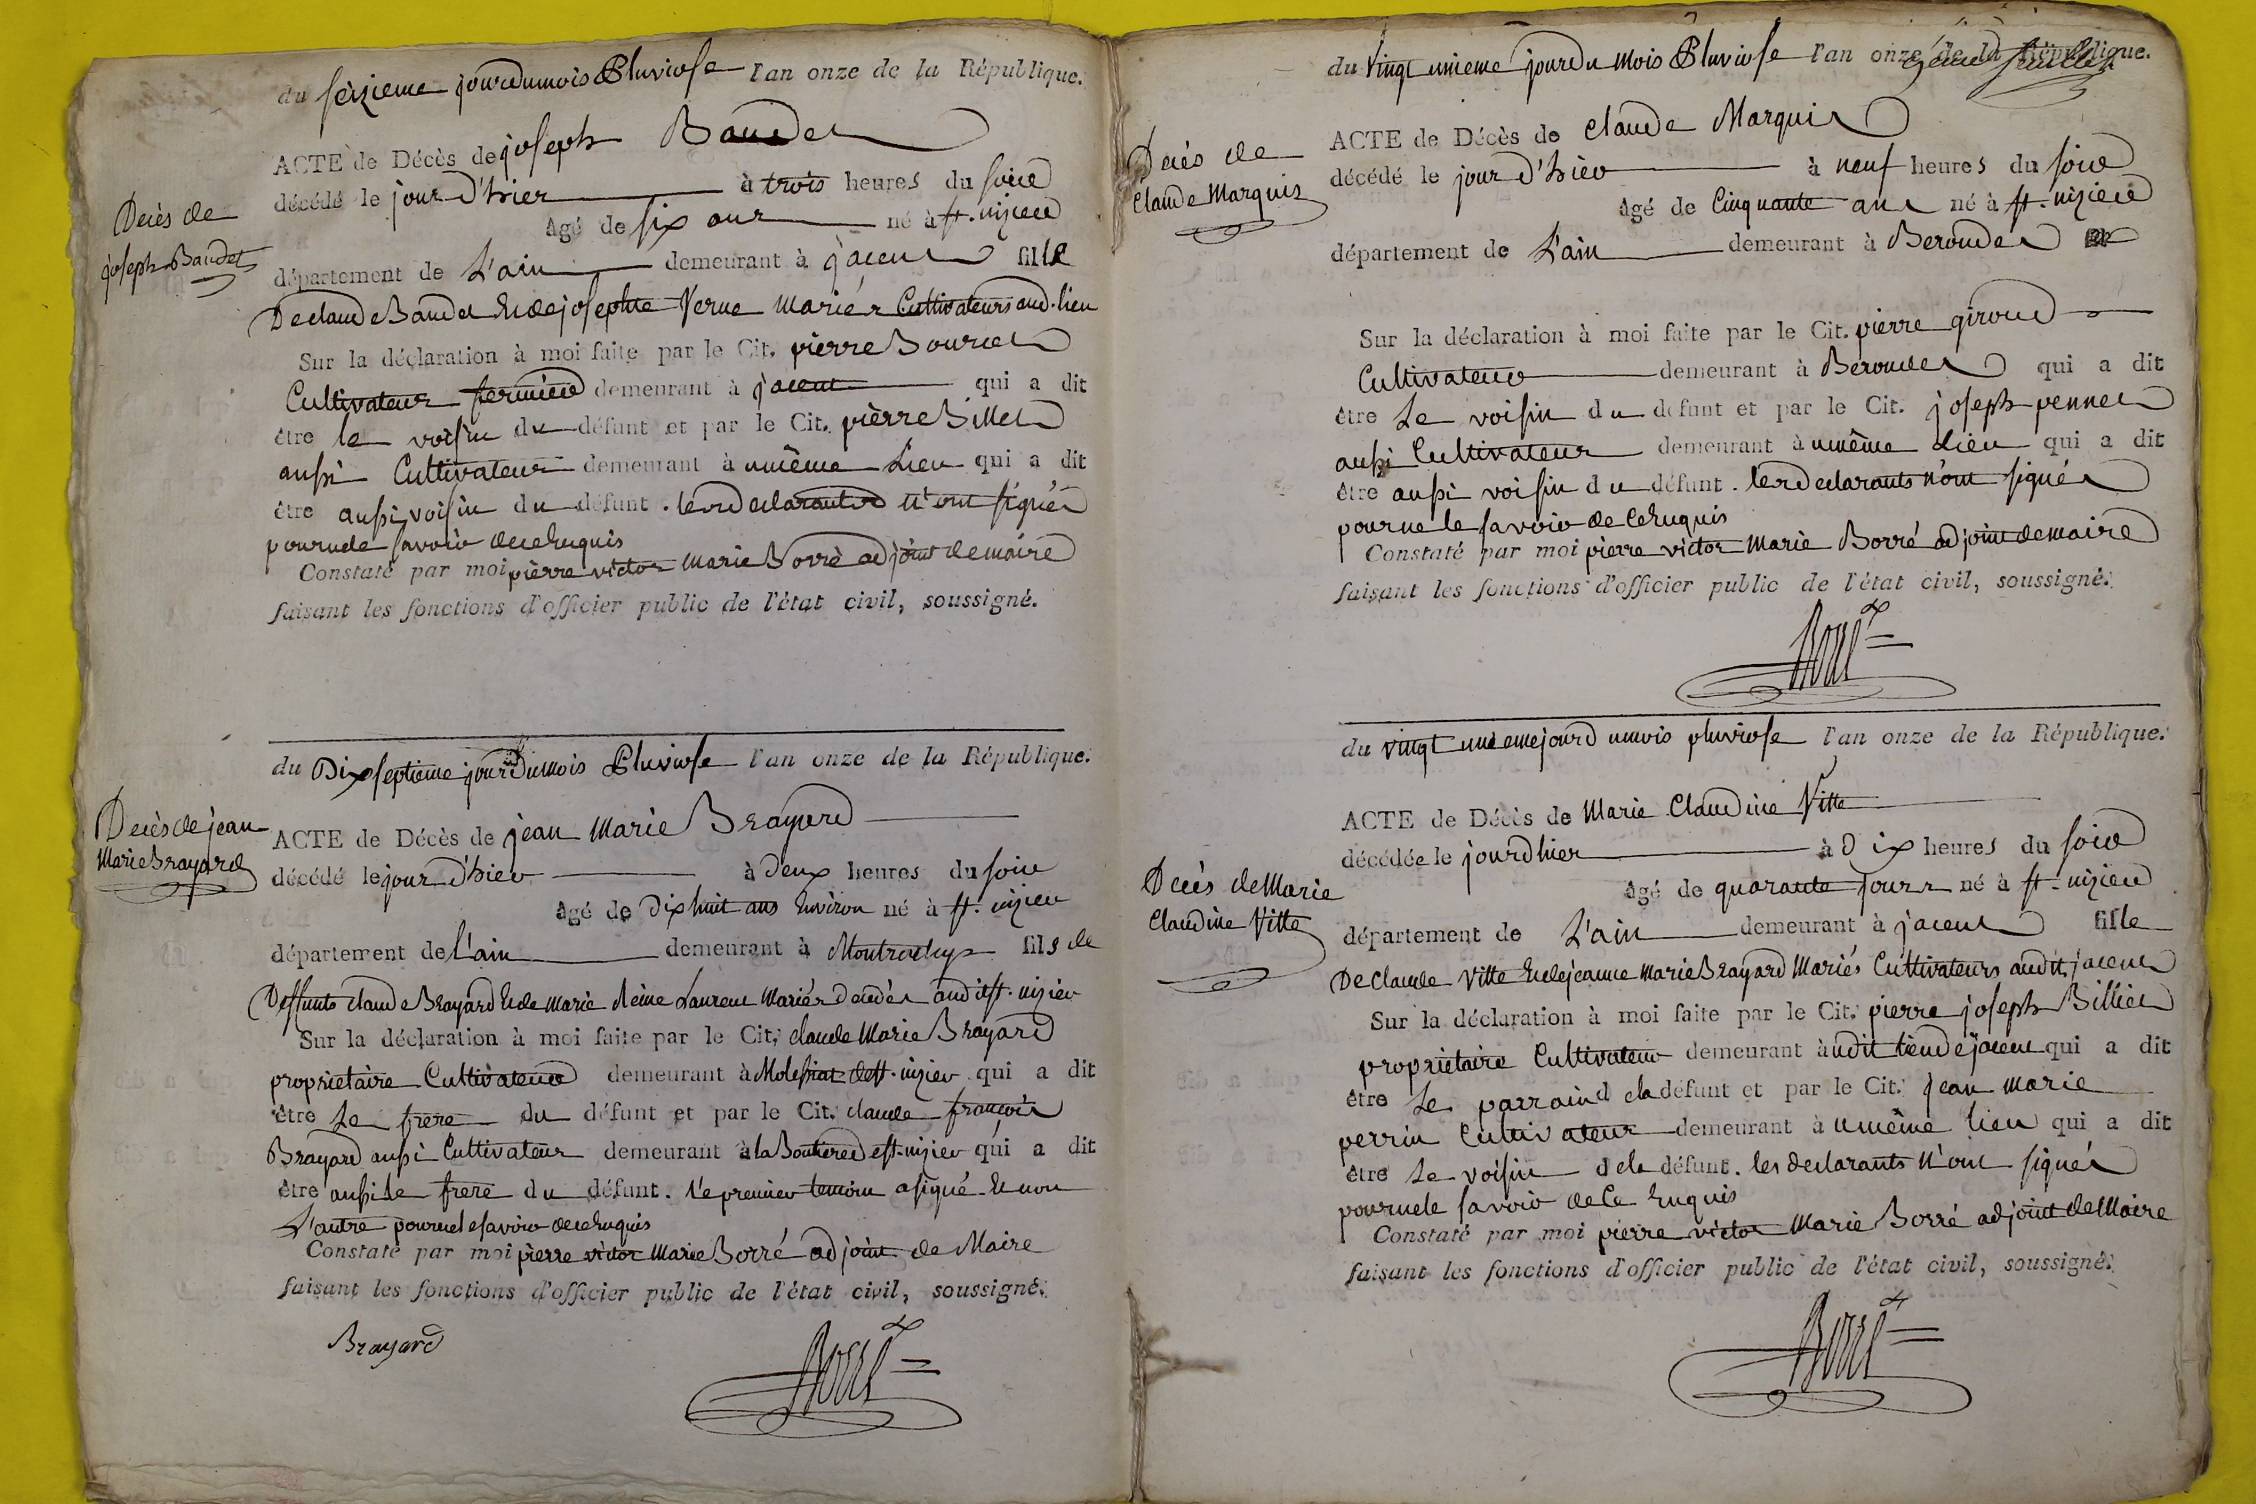 du seizieme jour du mois Pluviose l'an onze de la République.
ACTE de Décès de joseph Baudet
décédé le jour d'hier à trois heures du soir
Decès de
joseph Baudet
âgé de six ans né à st. nizier
département de L'ain demeurant à jacent fils
De claude Baudet Et de josephte Verne mariés Cultivateurs aud. lieu
Sur la déclaration à moi faite par le Cit. pierre Bourcet
Cultivateur fermier demeurant à jacent qui a dit
être le voisin du défunt et par le Cit. pierre Billet
aussi Cultivateur demeurant à même Lieu qui a dit
être aussi voisin du défunt. les declarants n'ont signés
pour ne le savoir de ce Enquis
Constaté par moi pierre victor marie Borré adjoint de maire
faisant les fonctions d'officier public de l'état civil, soussigné.
du Dix septieme jour Du mois Pluviose l'an onze de la République.
Decès de jean
Marie Brayard
ACTE de Décès de jean Marie Brayard
décédé le jour d'hier à deux heures du soir
âgé de dix huit ans Environ né à st. nizier
département de L'ain demeurant à fils de
Deffunts claude Brayard Et de Marie Reine Laurent Mariés décédés audit st. nizier
Sur la déclaration à moi faite par le Cit. claude Marie Brayard
proprietaire Cultivateur demeurant à Molessiat de st. nizier qui a dit
être Le frere du défunt et par le Cit. claude françois
Brayard aussi Cultivateur demeurant à la de st. nizier qui a dit
être aussi le frere du défunt. Le premier temoin a signé Et non
L'autre pour ne le savoir de ce Enquis
Constaté par moi pierre victor Marie Borré adjoint de Maire
faisant les fonctions d'officier public de l'état civil, soussigné.
Brayard
Borré
du Vingt unieme jour Du mois Pluviose l'an onze de la République.
Decés de
Claude Marquis
ACTE de Décès de Claude Marquis
décédé le jour d'hier à neuf heures du soir
âgé de Cinquante ans né à st. nizier
département de L'ain demeurant à Beroudes
Sur la déclaration à moi faite par le Cit. pierre giroud
Cultivateur demeurant à Beroudes qui a dit
être Le voisin du défunt et par le Cit. joseph pennet
aussi Cultivateur demeurant à même Lieu qui a dit
être aussi voisin du défunt. les declarants n'ont signés
pour ne le savoir de Ce Enquis
Constaté par moi pierre victor Marie Borré adjoint de maire
faisant les fonctions d'officier public de l'état civil, soussigné.
Borré
du vingt unieme jour du mois pluviose l'an onze de la République.
ACTE de Décès de Marie Claudine Vitte
décédée le jour d'hier à Dix heures du soir
Decès de Marie
Claudine Vitte
âgé de quarante jours né à st. nizier
département de L'ain demeurant à jacent fille
De Claude Vitte Et de jeanne Marie Brayard Mariés Cultivateurs audit jacent
Sur la déclaration à moi faite par le Cit. pierre joseph Billiet
proprietaire Cultivateur demeurant à udit lieu de jacent qui a dit
être Le parrain de la défunt et par le Cit. jean marie
perrin Cultivateur demeurant à même lieu qui a dit
être Le voisin de la défunt. les declarants n'ont signés
pour ne le savoir de Ce Enquis
Constaté par moi pierre victor Marie Borré adjoint de Maire
faisant les fonctions d'officier public de l'état civil, soussigné.
Borré